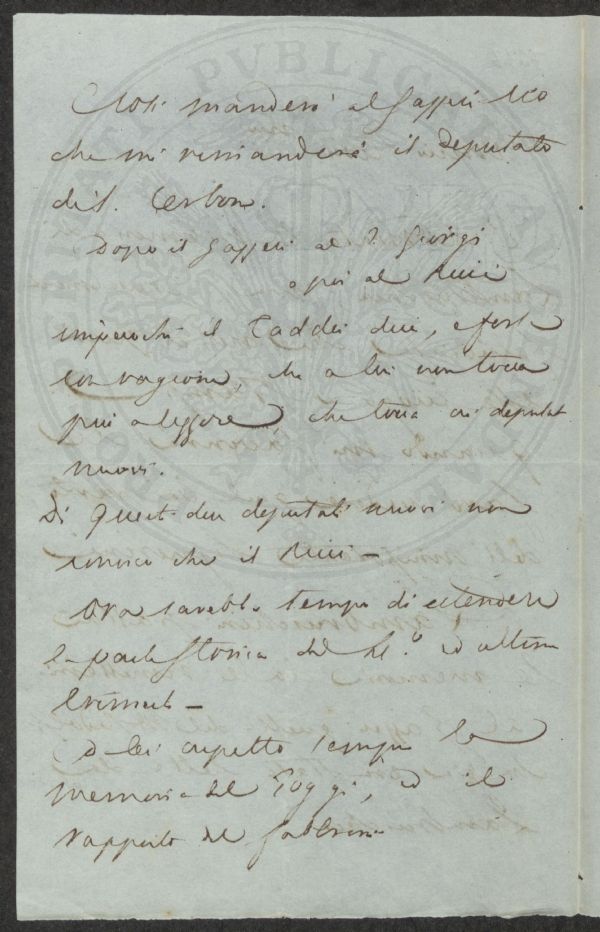 Così manderò al Gazzeri
che mi rimanderà il deputato
di S. Cerbone.
Dopo il Gazzeri al P. Giorgi
e poi al Ricci
imperochè il Taddei dice, e forse
con ragione, che a lui non tocca
più a leggere, che tocca ai deputati
nuovi.
Di questi due deputati nuovi non
conosco che il Ricci –
Ora sarebbe tempo di estendere
la parte storica del ed ultimo
trimest. –
Da lei aspetto sempre la
memoria del Poggi, ed il
rapporto del